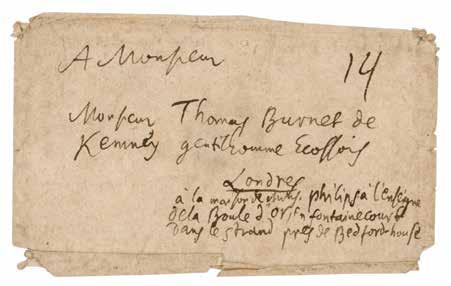 A Monsieur
14
Monsieur Thomas Burnet de
Kemney gentilhomme Ecossois
Londres
à la maison de philips à l'enseigne
de la Boule d'or en fontaine court
dans le strand pres de Bedford-house